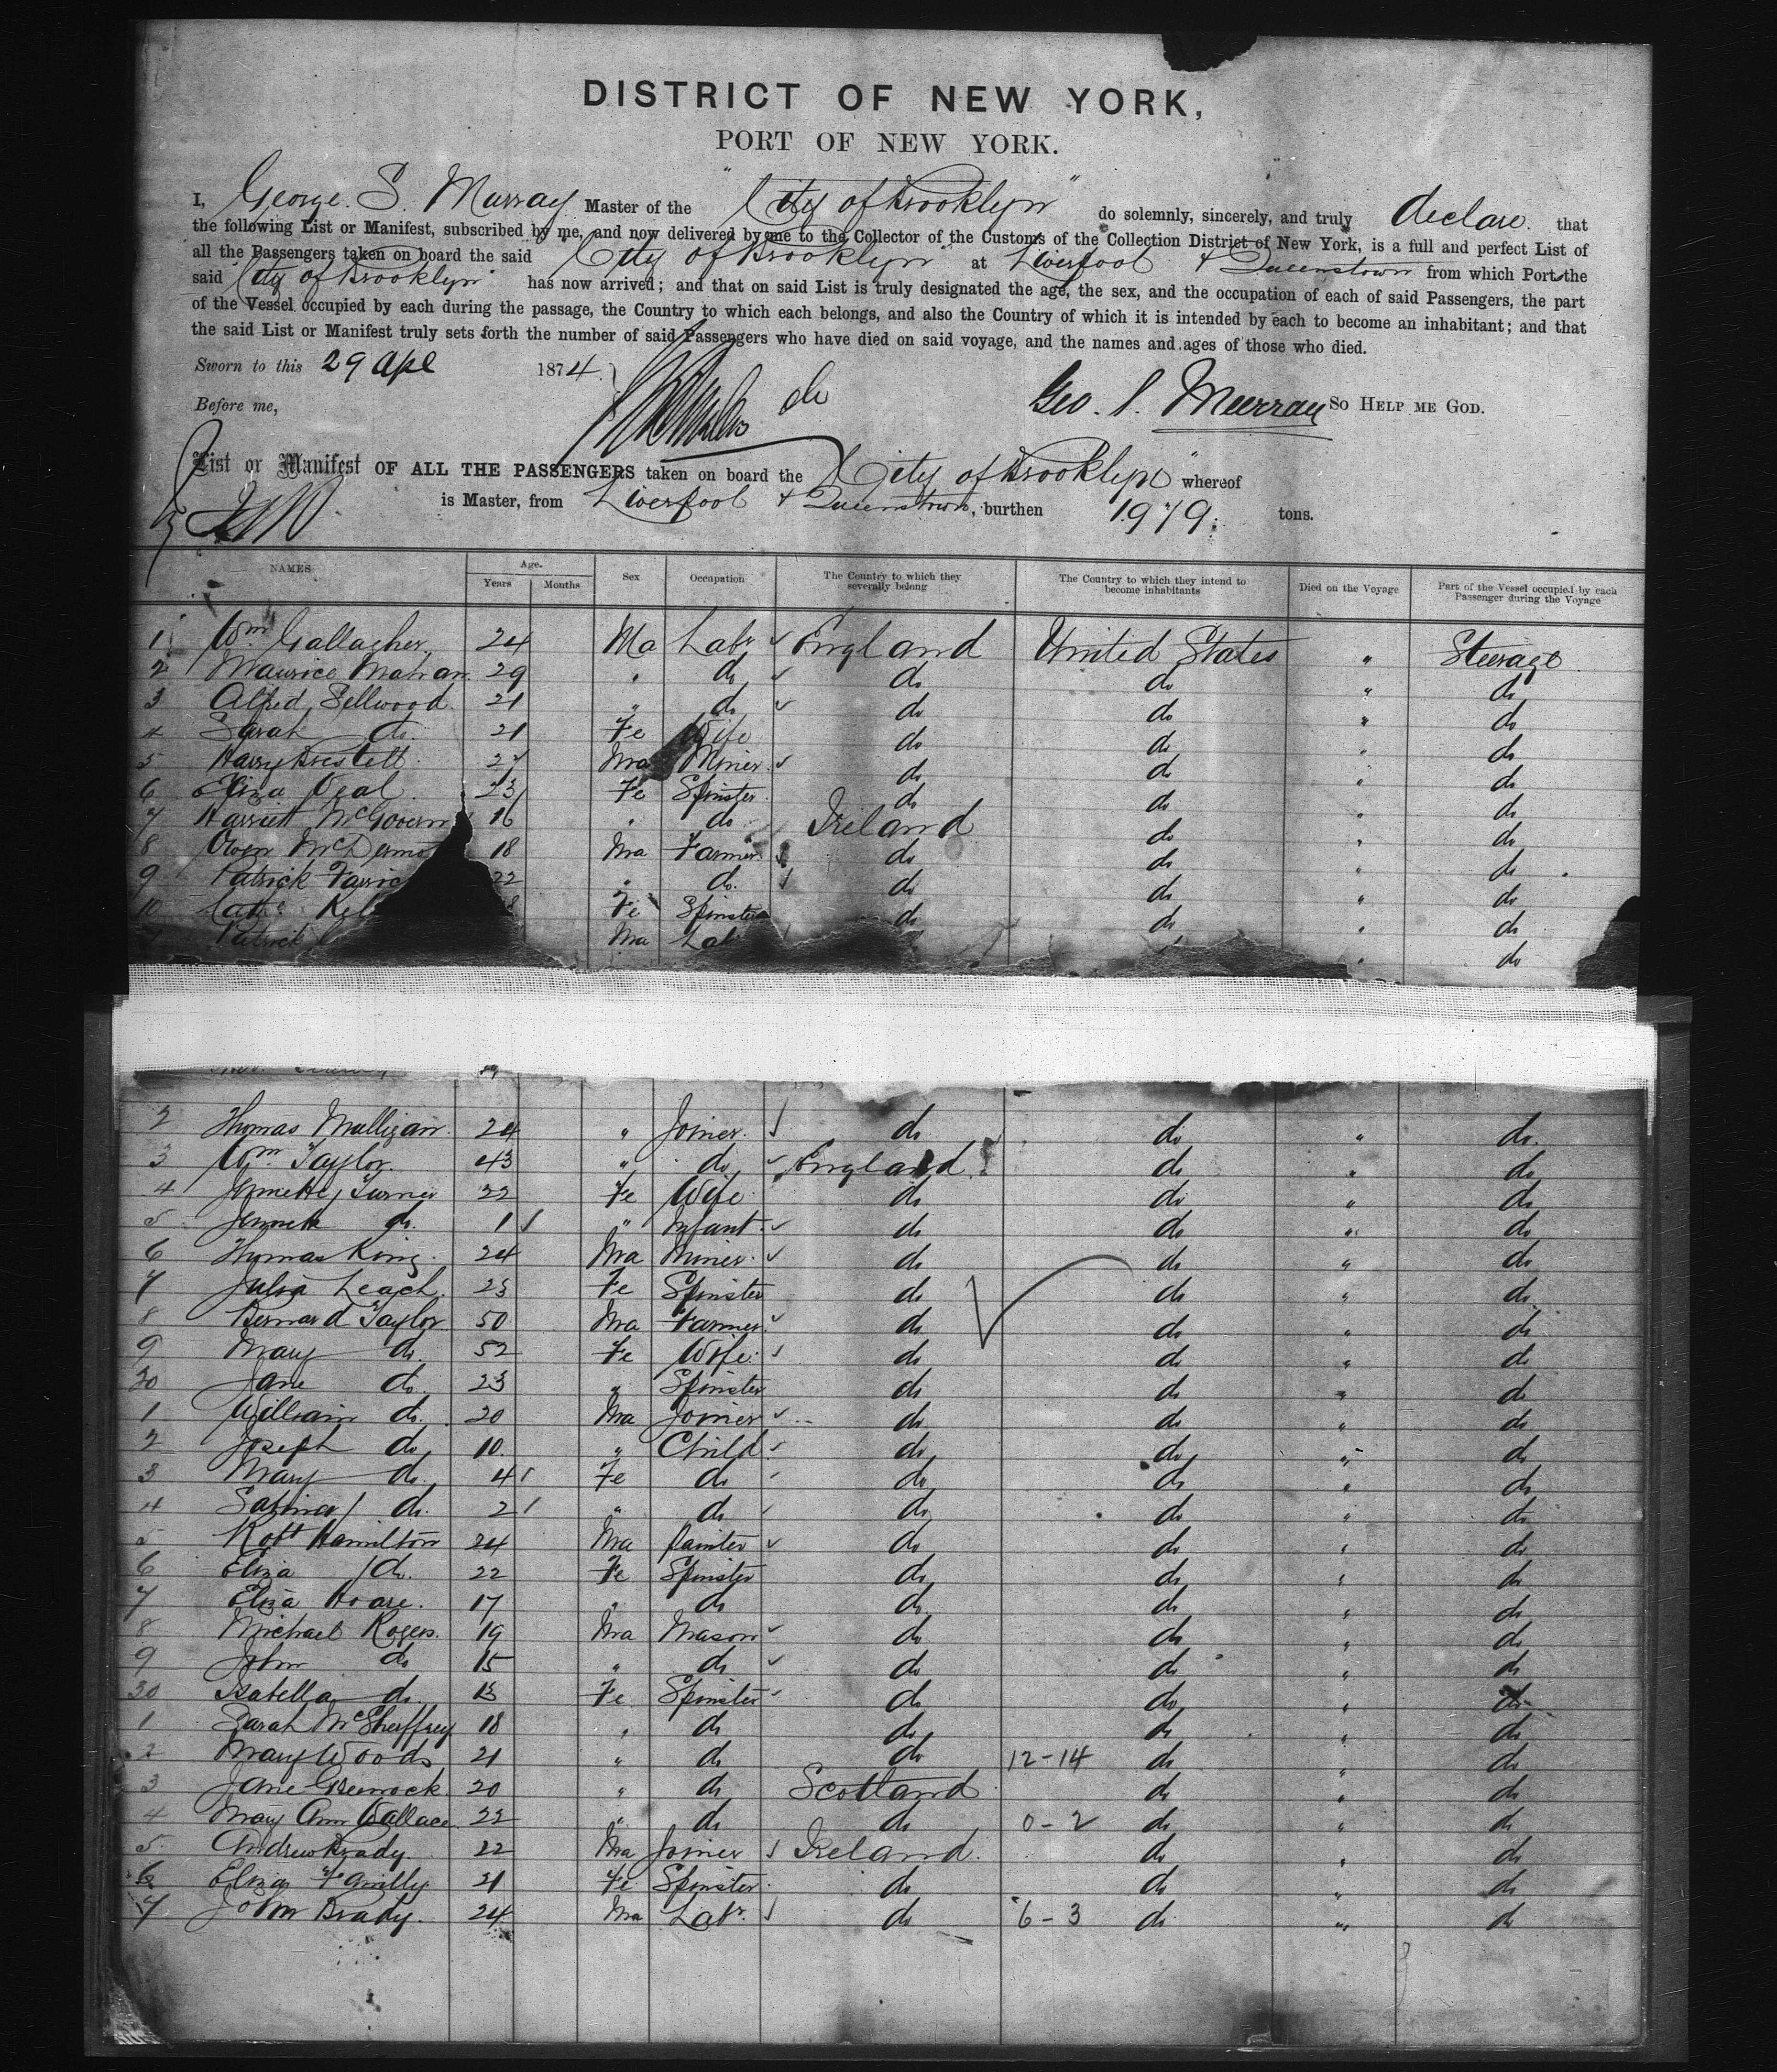 DISTRICT OF NEW YORK,
PORT OF NEW YORK.
I, George. S. Murray Master of the "City of Brooklyn" do solemnly, sincerely, and truly declare. that
the following List or Manifest, subscribed by me, and now delivered by me to the Collector of the Customs of the Collection District of New York, is a full and perfect List of
all the Passengers taken on board the said "City of Brooklyn" at Liverpool & Queenstown from which Port the
said "City of Brooklyn" has now arrived; and that on said List is truly designated the age, the sex, and the occupation of each of said Passengers, the part
of the Vessel occupied by each during the passage, the Country to which each belongs, and also the Country of which it is intended by each to become an inhabitant; and that
the said List or Manifest truly sets forth the number of said Passengers who have died on said voyage, and the names and ages of those who died.
Sworn to this 29 Apl 1874.
Before me, Geo. S. Murray SO HELP ME GOD.
List or Manifest OF ALL THE PASSENGERS taken on board the "City of Brooklyn" whereof
is Master, from Liverpool & Queenstown, burthen 1979. tons.
NAMES Age. Years Months Sex Occupation The Country to which they severally belong The Country to which they intend to become inhabitants Died on the Voyage Part of the Vessel occupied by each Passenger during the Voyage
1 Wm Gallagher. 24 Ma Labr England United States " Steerage
2 Maurice Mahan 29 " do do do " do
3 Alfred Sellwood 21 " do do do " do
4 Sarah do. 21 Fe Wife do do " do
5 Harry 27 Ma Miner do do " do
6 Eliza Deal 23 Fe Spinster do do " do
7 Harriett McGovern 16 " do Ireland do " do
8 Owen McDermo 18 Ma Farmer do do " do
9 Patrick 22 " do. do do " do
10 Cath Kel 8 Fe Spinster do do " do
Patrick Ma Lab " do
2 Thomas Mulligan. 24 " Joiner. do do " do.
3 Wm Taylor. 43 " do England. do " do
4 Jennette Turner 22 Fe Wife do do " do
5 do. 1 " Infant do do " do
6 Thomas King. 24 Ma Miner do do " do
7 Julia Leach. 23 Fe Spinster do do " do
8 Bernard Taylor 50 Ma Farmer do do " do
9 Mary do. 52 Fe Wife do do " do
20 Jane do. 23 " Spinster do do " do
1 William do. 20 Ma Joiner do do " do
2 Joseph do. 10. " Child do do " do
3 Mary do. 4 Fe do do do " do
4 Sabina do. 2 " do do do " do
5 Robt Hamilton 24 Ma Painter do do " do
6 Eliza do. 22 Fe Spinster do do " do
7 Eliza Hoare. 17 " do do do " do
8 Michael Rogers. 19 Ma Mason do do " do
9 John do 15 " do do do " do
30 Isabella do. 13 Fe Spinster do do " do
1 Sarah McSheffrey 18 " do do do " do
2 Mary Woods 21 " do do 12-14 do " do
3 Jane Greenock 20 " do Scotland do " do
4 Mary Ann Wallace. 22 " do do 0-2 do " do
5 Andrew Brady. 22 Ma Joiner Ireland. do " do
6 Eliza 21 Fe Spinster do do " do
7 John Brady. 24 Ma Labr do 6-3 do " do